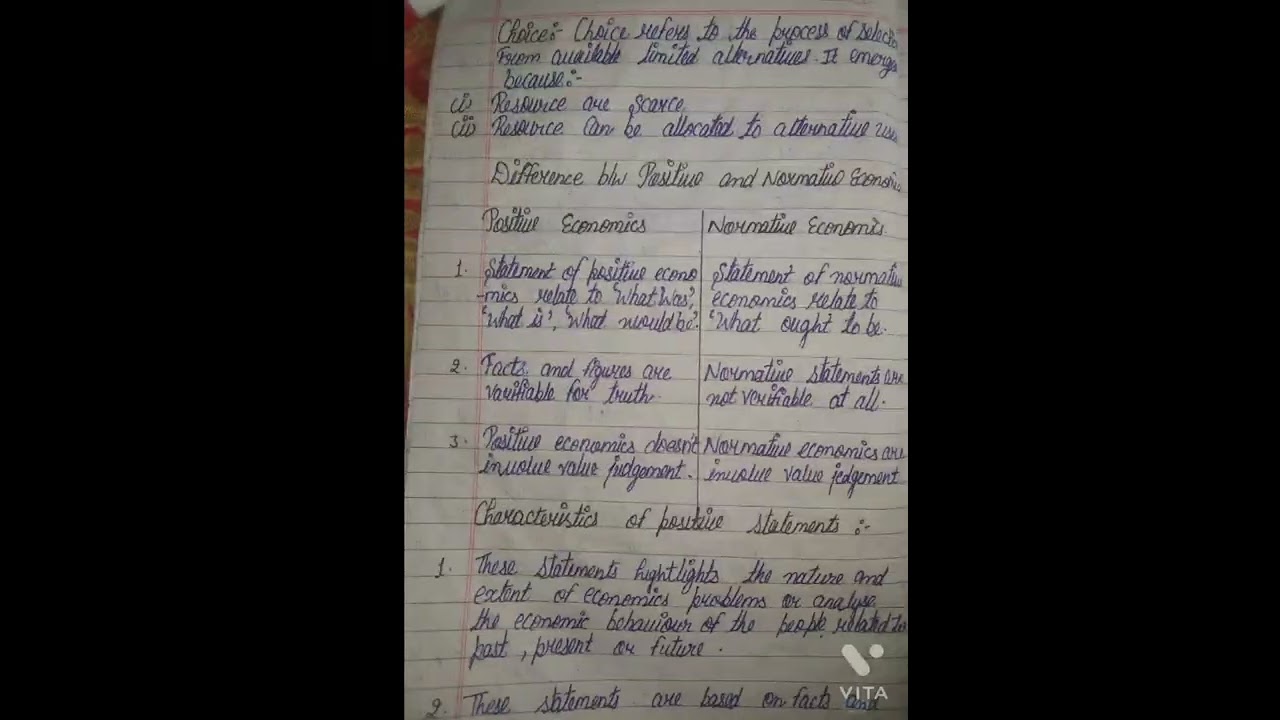 Choice:- Choice refers to the process of selec
From available limited alternatives. It emerge
because:-
(i) Resource are scarce
(ii) Resource can be allocated to alternative use
Difference b/w Positive and Normative Economi
Positive Economics
Normative Economics
1. Statement of positive econo
-mics relate to 'What was',
'What is', 'What would be'.
Statement of normative
economics relate to
'What ought to be.
2. Facts and figures are
varifiable for truth.
Normative statements are
not verifiable at all.
3. Positive economics doesn't
involve value judgement.
Normative economics are
involve value jedgement
Characteristics of positive statements :-
1. These statements hightlights the nature and
extent of economics problems or analyse
the economic behaviour of the people related to
past, present or future.
2. These statements are based on facts and
VITA